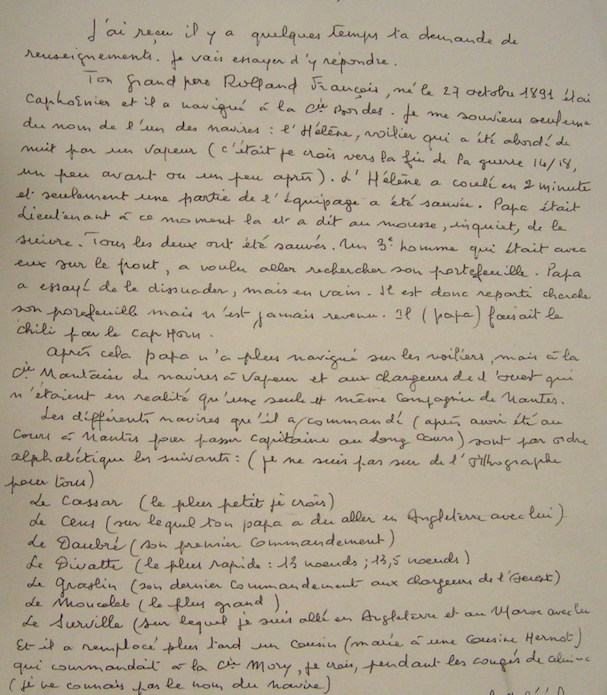 J'ai reçu il y a quelques temps ta demande de
renseignements. Je vais essayer d'y répondre.
Ton grand père Rolland François, né le 27 octobre 1891 étai
CapHoEnier et il a navigué à la Cie Bordes. Je me souviens seuleme
du nom de l'un des navires : l'Hélène, voilier qui a été abordé de
nuit par un vapeur (c'était je crois vers la fin de la guerre 14/18,
un peu avant ou un peu après). L'Hélène a coulé en 2 minute
et seulement une partie de l'équipage a été sauvée. Papa était
Lieutenant à ce moment la et a dit au mousse, inquiet, de le
suivre. Tous les deux ont été sauvés. Un 3e homme qui était avec
eux sur le pont, a voulu aller rechercher son portefeuille. Papa
a essayé de le dissuader, mais en vain. Il est donc reparti cherche
son porefeuille mais n'est jamais revenu. Il (papa) faisait le
chili par le cap Horn.
Après cela papa n'a plus navigué sur les voiliers, mais à la
Cie Nantaise de navires à vapeur et aux chargeurs de l'ouest qui
n'étaient en realité qu'une seule et même compagnie de Nantes.
Les différents navires qu'il a commandé (après avoir été au
Cours à Nantes pour passer capitaine au Long Cours) sont par ordre
alphabétique les suivants : (je ne suis pas sur de l'orthographe
pour tous)
Le Cassar (le plus petit je crois)
Le Cens (sur lequel ton papa a du aller en Angleterre avec lui)
Le Daubré (son premier commandement)
Le Divatte (le plus rapide : 13 noeuds ; 13,5 noeuds)
Le Graslin (son dernier commandement aux chargeurs de l'ouest)
Le Moncalet (le plus grand)
Le Surville (sur lequel je suis allé en Angleterre et au Maroc avec lu
Et il a remplacé plus tard un cousin (marié à une cousine Hernot)
qui commandait à la Cie Mory, je crois, pendant les congés de
(je ne connais pas le nom du navire)